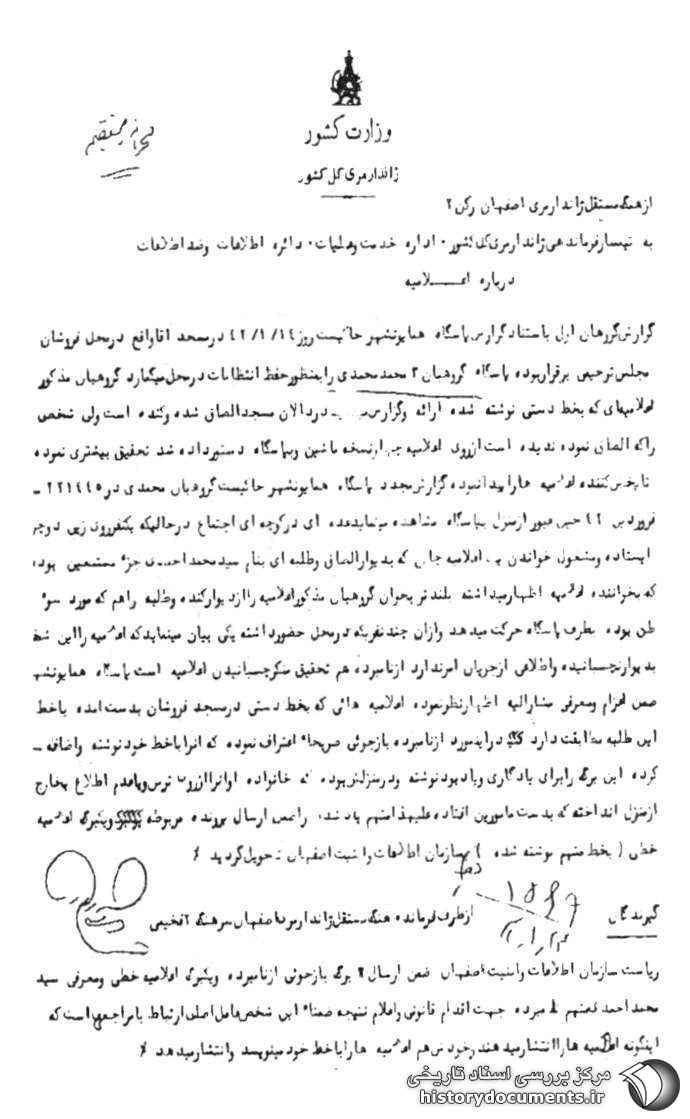 محرمانه مستقیم
وزارت کشور
ژاندارمری کل کشور
از هنگ مستقل ژاندارمری اصفهان رکن ۲
به تیمسار فرماندهی ژاندارمری کل کشور - اداره خدمت و عملیات - دائره اطلاعات و ضد اطلاعات
درباره اعلامیه
گزارش گروهان اول باستناد گزارش پاسگاه همایونشهر حاکیست روز ۴۲/۱/۱۴ در مسجد آقا واقع در محل فروشان
مجلس ترحیمی برقرار بوده پاسگاه گروهبان ۲ محمد محمدی را بمنظور حفظ انتظامات در محل میگمارد گروهبان مذکور
اعلامیهای که بخط دستی نوشته شده ارائه و گزارش در دالان مسجد الصاق شده و کنده است ولی شخصی
را که الصاق نموده ندیده است از روی اعلامیه چهار نسخه ماشین و بپاسگاه دستور داده شد تحقیق بیشتری نموده
تا پخش کننده اعلامیه ها را پیدا نموده گزارش مجدد پاسگاه همایونشهر حاکیست گروهبان محمدی در
فروردین ۴۲ حین عبور از منزل بپاسگاه مشاهده مینماید عده ای در کوچه ای اجتماع در حالیکه یکنفر روی زین دوچر
ایستاده و مشغول خواندن اعلامیه چاپی که بدیوار الصاق و طلبه ای بنام سید محمد احمدی جزء مستمعین بوده
که بخواننده اعلامیه اظهار میداشته بلندتر بخوان گروهبان مذکور اعلامیه را از دیوار کنده و طلبه را هم که مورد سوء
ظن بوده بطرف پاسگاه حرکت میدهد و از آن چند نفریکه در محل حضور داشته یکی بیان مینماید که اعلامیه را این شخص
بدیوار نچسبانیده و اطلاعی از جریان امر ندارد از نامبرده هم تحقیق منکر چسبانیدن اعلامیه است پاسگاه همایونشهر
ضمن اعزام و معرفی مشارالیه اظهار نظر نموده اعلامیه هائی که بخط دستی در مسجد فروشان بدست آمده با خط
این طلبه مطابقت دارد در اینمورد از نامبرده بازجوئی صریحا" اعتراف نموده که آنرا با خط خود نوشته و اضافه -
کرده این برگ را برای یادگاری و یادبود نوشته و در منزلش بوده که خانواده او آنرا از روی ترس و یا عدم اطلاع بخارج
از منزل انداخته که بدست مامورین افتاده علیهذا متهم یاد شده را ضمن ارسال پرونده مربوطه و یکبرگ اعلامیه
خطی ( بخط متهم نوشته شده ) بسازمان اطلاعات و امنیت اصفهان تحویل گردید ٪
از طرف فرمانده هنگ مستقل ژاندارمری اصفهان سرهنگ ۲ فخیمی
گیرندگان
ریاست سازمان اطلاعات و امنیت اصفهان ضمن ارسال ۲ برگ بازجوئی از نامبرده و یکبرگ اعلامیه خطی و معرفی سید
محمد احمدی متهم نامبرده جهت اقدام قانونی و اعلام نتیجه ضمنا" این شخص عامل اصلی ارتباط با مراجعی است که
اینگونه اعلامیه ها را انتشار میدهند و خودش هم اعلامیه ها را با خط خود مینویسد و انتشار میدهد ٪
مرکز بررسی اسناد تاریخی
historydocuments.ir